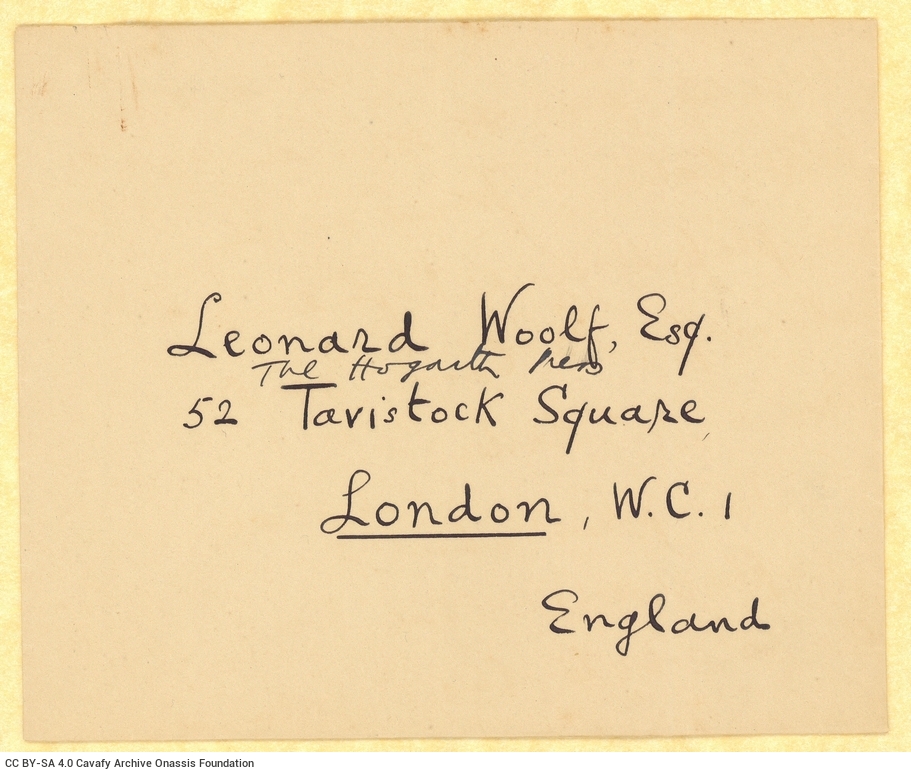 Leonard Woolf, Esq.
The Hogarth Press
52 Tavistock Square,
London, W.C. 1
England
CC BY-SA 4.0 Cavafy Archive Onassis Foundation